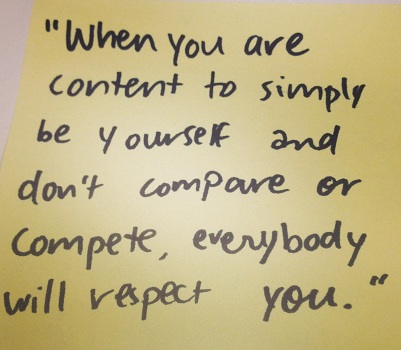 "When you are
content to simply
be yourself and
don't compare or
compete, everybody
will respect you."